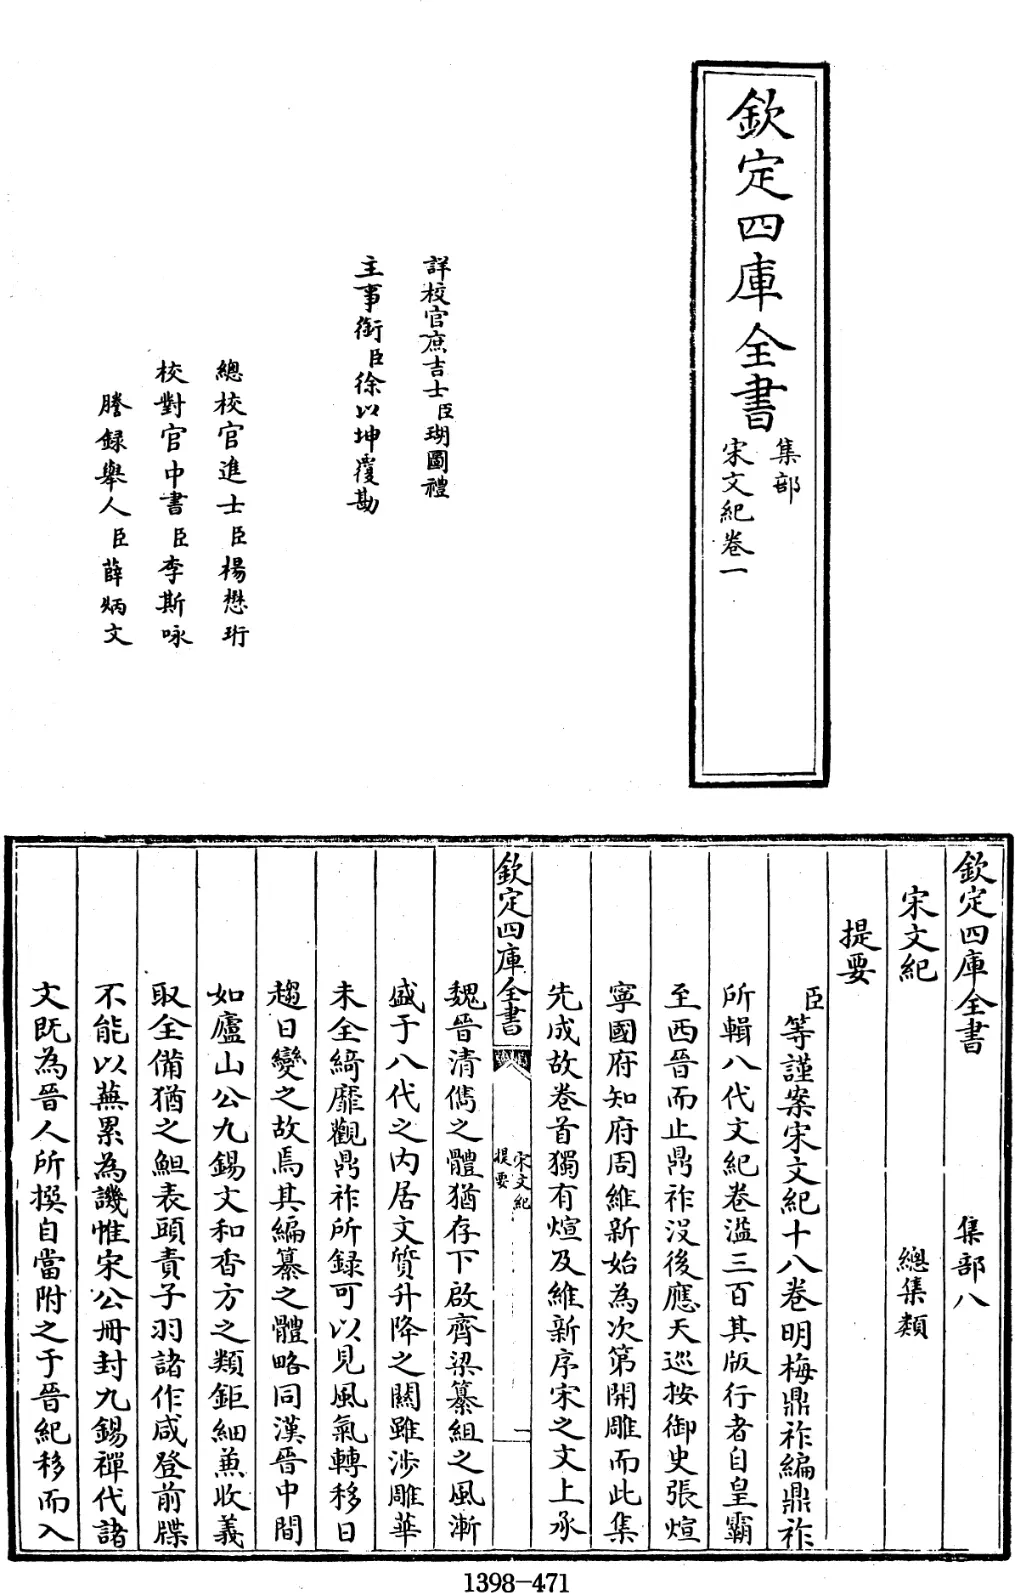 欽定四庫全書
集部
宋文紀卷一
詳校官庶吉士臣瑚圖禮
主事銜臣徐以坤覆勘
總校官進士臣楊懋珩
校對官中書臣李斯咏
謄録舉人臣薛炳文
欽定四庫全書 集部八
宋文紀 總集類
提要
臣等謹案宋文紀十八卷明梅鼎祚編鼎祚
所輯八代文紀卷溢三百其版行者自皇霸
至西晉而止鼎祚没後應天巡按御史張煊
寧國府知府周維新始為次第開雕而此集
先成故卷首獨有煊及維新序宋之文上承
欽定四庫全書
宋文紀
提要
一
魏晉清儁之體猶存下啟齊梁纂組之風漸
盛于八代之内居文質升降之關雖涉雕華
未全綺靡觀鼎祚所録可以見風氣轉移日
趨日變之故焉其編纂之體略同漢晉中間
如廬山公九錫文和香方之類鉅細兼收義
取全備猶之䱇表頭責子羽諸作咸登前牒
不能以蕪累為譏惟宋公冊封九錫禪代諸
文既為晉人所撰自當附之于晉紀移而入
1398-471